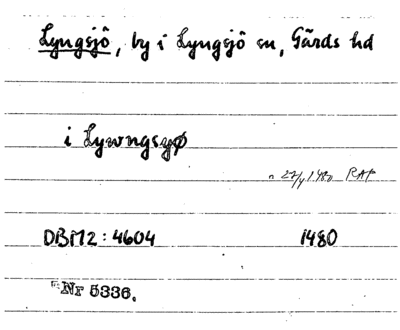 Lyngsjö, by i Lyngsjö sn, Gärds hd
i Lywngsyø
27/4 1480 RAP
DBM2: 4604 1480
Nr 5336.